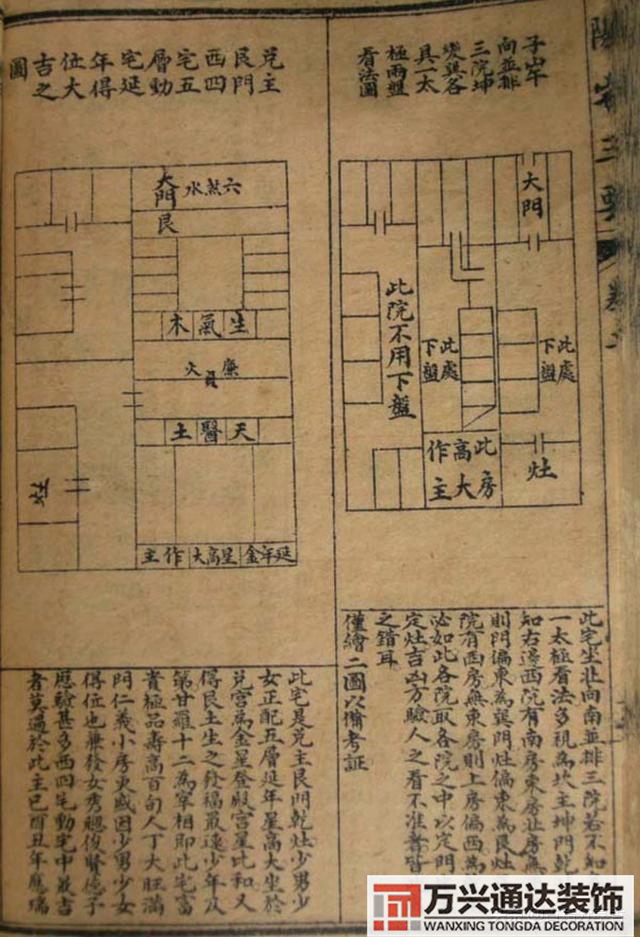 陽宅三要
子山午
向並排
三院坤
坎巽各
具一太
極兩盤
看法圖
大門
此院不用下盤
此處
下盤
此處
下盤
此房
高大
作主
灶
此宅坐北向南並排三院若不知
一太極看法多視為坎主坤門乾
知右邊西院有南房東房北房無
則門偏東為巽門灶偏東為艮灶
院有西房無東房則上房偏西為
必如此各院取各院之中以定門
定灶吉凶方驗人之看不准者皆
之錯耳
僅繪二圖以備考証
兌主
艮門
西四
宅五
層動
宅延
年得
位大
吉之
圖
六煞水
大門
艮
生氣木
廉
火
天醫土
灶
延年金星高大作主
此宅是兌主艮門乾灶少男少
女正配五層延年星高大坐於
兌宮為金星登殿宮星比和又
得艮土生之發福最遠少年及
第甘羅十二為宰相即此宅富
貴極品壽高百旬人丁大旺滿
門仁義小房更盛因少男少女
得位也兼發女秀聰俊賢德子
應驗甚多西四宅動宅中最吉
者莫過於此主巳酉丑年應瑞
万兴通达装饰
WANXING TONGDA DECORATION